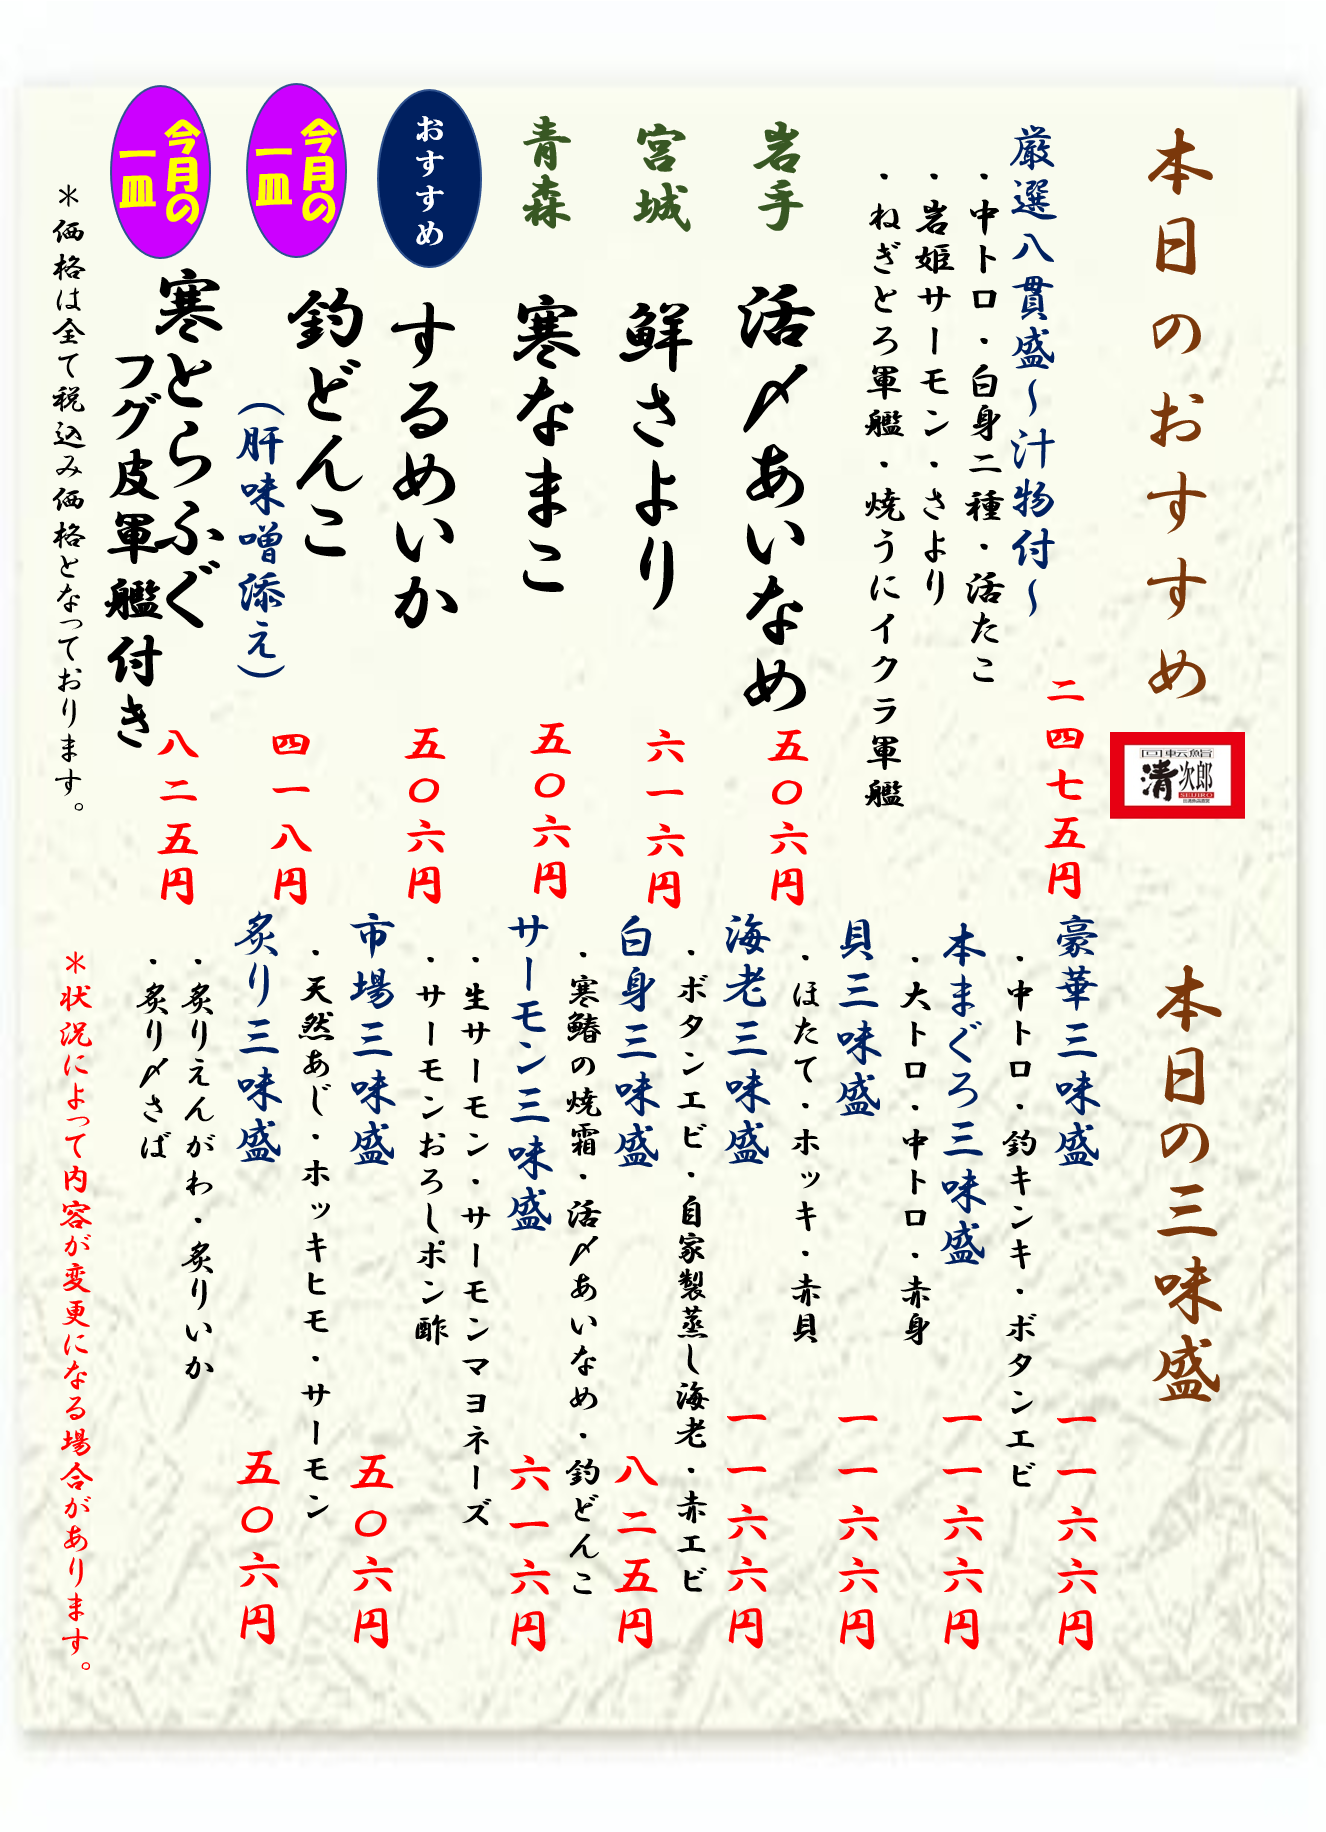 本日のおすすめ
回転鮨
清次郎
SEIJIRO
厳選八貫盛～汁物付～
二四七五円
・中トロ・白身二種・活たこ
・岩姫サーモン・さより
・ねぎとろ軍艦・焼うにイクラ軍艦
岩手
活〆あいなめ
五〇六円
宮城
鮮さより
六一六円
青森
寒なまこ
五〇六円
おすすめ
するめいか
五〇六円
今月の
一皿
釣どんこ
（肝味噌添え）
四一八円
今月の
一皿
寒とらふぐ
フグ皮軍艦付き
八二五円
＊価格は全て税込み価格となっております。
本日の三味盛
豪華三味盛
一一六六円
・中トロ・釣キンキ・ボタンエビ
本まぐろ三味盛
一一六六円
・大トロ・中トロ・赤身
貝三味盛
一一六六円
・ほたて・ホッキ・赤貝
海老三味盛
一一六六円
・ボタンエビ・自家製蒸し海老・赤エビ
白身三味盛
八二五円
・寒鰆の焼霜・活〆あいなめ・釣どんこ
サーモン三味盛
六一六円
・生サーモン・サーモンマヨネーズ
・サーモンおろしポン酢
市場三味盛
五〇六円
・天然あじ・ホッキヒモ・サーモン
炙り三味盛
五〇六円
・炙りえんがわ・炙りいか
・炙り〆さば
＊状況によって内容が変更になる場合があります。